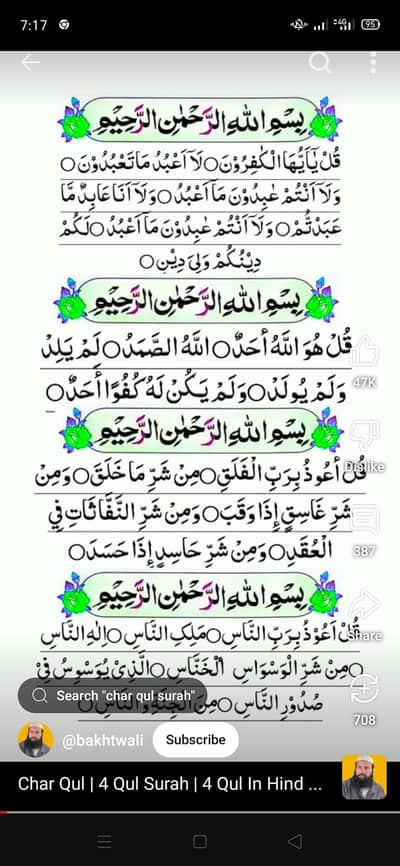 7:17
4G
95
بِسْمِ اللهِ الرَّحْمٰنِ الرَّحِيْمِ
قُلْ يٰٓاَيُّهَا الْكٰفِرُوْنَ○لَآ اَعْبُدُ مَا تَعْبُدُوْنَ○
وَلَآ اَنْتُمْ عٰبِدُوْنَ مَآ اَعْبُدُ○وَلَآ اَنَا عَابِدٌ مَّا
عَبَدْتُّمْ○وَلَآ اَنْتُمْ عٰبِدُوْنَ مَآ اَعْبُدُ○لَكُمْ
دِيْنُكُمْ وَلِيَ دِيْنِ○
بِسْمِ اللهِ الرَّحْمٰنِ الرَّحِيْمِ
قُلْ هُوَ اللهُ أَحَدٌ○اَللهُ الصَّمَدُ○لَمْ يَلِدْ
وَلَمْ يُولَدْ○وَلَمْ يَكُنْ لَهُ كُفُوًا أَحَدٌ○
بِسْمِ اللهِ الرَّحْمٰنِ الرَّحِيْمِ
قُلْ أَعُوذُ بِرَبِّ الْفَلَقِ○مِنْ شَرِّ مَا خَلَقَ○وَمِنْ
شَرِّ غَاسِقٍ إِذَا وَقَبَ○وَمِنْ شَرِّ النَّفَّاثَاتِ فِي
الْعُقَدِ○وَمِنْ شَرِّ حَاسِدٍ إِذَا حَسَدَ○
بِسْمِ اللهِ الرَّحْمٰنِ الرَّحِيْمِ
قُلْ اَعُوْذُ بِرَبِّ النَّاسِ○مَلِكِ النَّاسِ○اِلٰهِ النَّاسِ
○مِنْ شَرِّ الْوَسْوَاسِ الْخَنَّاسِ○الَّذِيْ يُوَسْوِسُ فِيْ
صُدُوْرِ النَّاسِ○مِنَ الْجِنَّةِ وَالنَّاسِ○
47K
Dislike
387
Share
708
Search "char qul surah"
@bakhtwali
Subscribe
Char Qul | 4 Qul Surah | 4 Qul In Hind ...